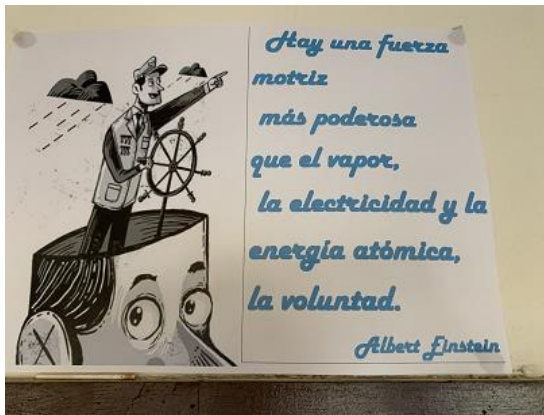 Hay una fuerza
motriz
más poderosa
que el vapor,
la electricidad y la
energía atómica,
la voluntad.
Albert Einstein